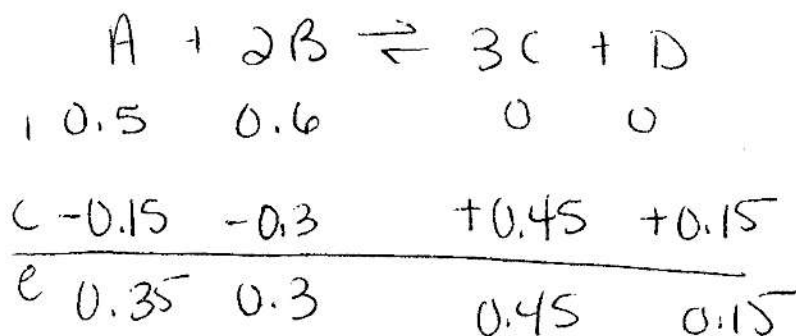 A + 2B ⇌ 3C + D
i 0.5 0.6 0 0
c -0.15 -0.3 +0.45 +0.15
e 0.35 0.3 0.45 0.15